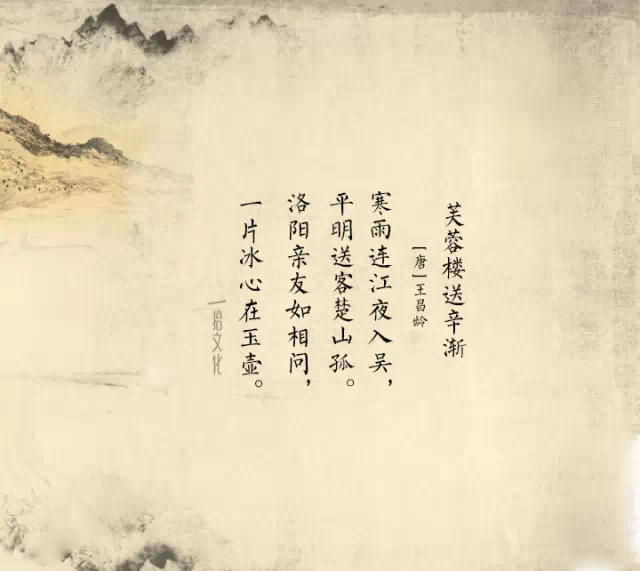 芙蓉楼送辛渐
[唐]王昌龄
寒雨连江夜入吴，
平明送客楚山孤。
洛阳亲友如相问，
一片冰心在玉壶。
一拾文化